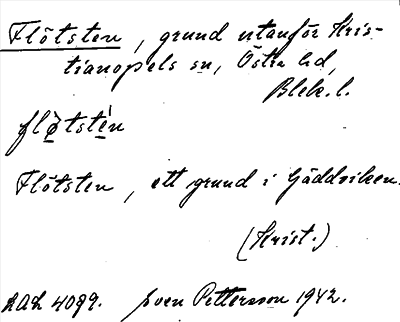 Flötsten, grund utanför Kris-
tianopels sn, Östra hd,
Blek. l.
flø̀tsté̱n
Flötsten, ett grund i Gäddviken.
(Krist.)
LAL 4099. Sven Pettersson 1942.